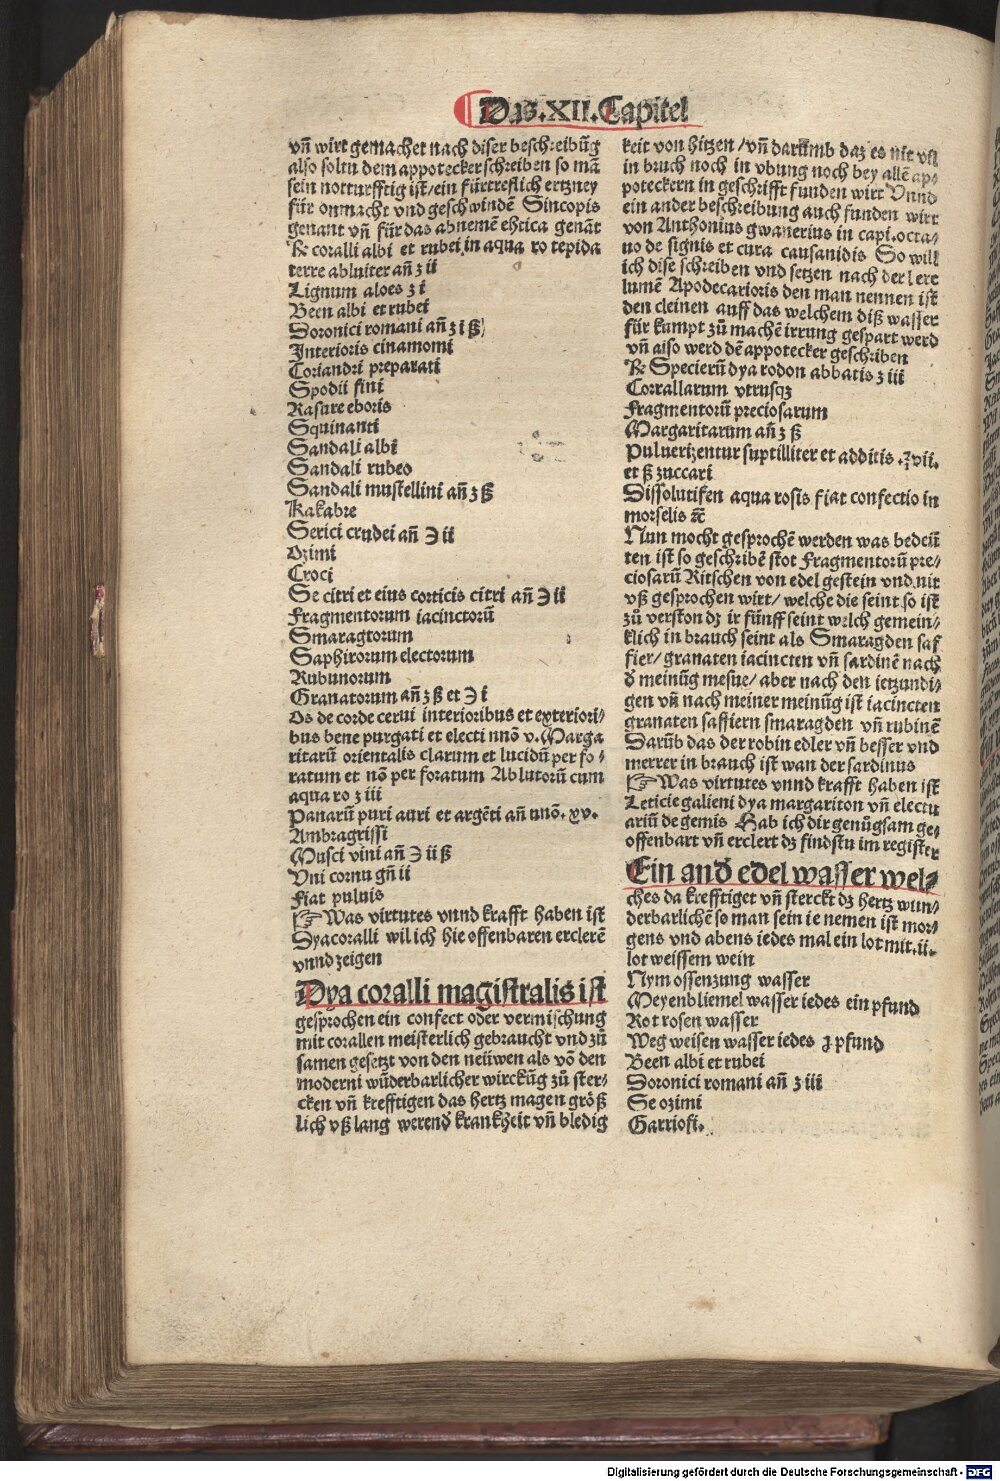 Das .XII. Capitel
vñ wirt gemachet nach diser beschreibũg
also soltu dem appotecker schreiben so mã
sein notturfftig ist/ein fürtreflich ertzney
für onmacht vnd geschwindẽ Sincopis
genant vñ für das abnemẽ ehtica genãt
℞ coralli albi et rubei in aqua ro tepida
terre abluiter añ ʒ ii
Lignum aloes ʒ i
Been albi et rubei
Doronici romani añ ʒ i ß
Interioris cinamomi
Coriandri preparati
Spodii fini
Rasure eboris
Squinanti
Sandali albi
Sandali rubeo
Sandali mustellini añ ʒ ß
Kakabre
Serici crudei añ ℈ ii
Ozimi
Croci
Se citri et eius corticis citri añ ℈ ii
Fragmentorum iacinctorũ
Smaragtorum
Saphirorum electorum
Rubunorum
Granatorum añ ʒ ß et ℈ i
Os de corde cerui interioribus et exteriori⸗
bus bene purgati et electi nnõ v. Marga
ritarũ orientalis clarum et lucidũ per fo⸗
ratum et nõ per foratum Ablutorũ cum
aqua ro ʒ iii
Panarũ puri auri et argẽti añ nnõ. xv.
Ambragrissi
Musci vini añ ℈ ii ß
Vni cornu gñ ii
Fiat puluis
☞ Was virtutes vnnd krafft haben ist
Dyacoralli wil ich hie offenbaren erclerẽ
vnnd zeigen
Dya coralli magistralis ist
gesprochen ein confect oder vermischung
mit corallen meisterlich gebraucht vnd zů
samen gesetzt von den neüwen als võ den
moderni wũderbarlicher wirckũg zů ster⸗
cken vñ krefftigen das hertz magen größ
lich vß lang werend krankheit vñ bledig
keit von hitzen/vñ darũmb daz es nit vil
in bruch noch in vbung noch bey allẽ apo⸗
poteckern in geschrifft funden wirt Vnnd
ein ander beschreibung auch funden wirt
von Anthonius gwanerius in capi.octa⸗
uo de signis et cura causanidis So will
ich dise schreiben vnd setzen nach der lere
lumẽ Apodecarioris den man nennen ist
den cleinen auff das welchem diß wasser
für kumpt zů machẽ irrung gespart werd
vñ also werd dẽ appotecker geschriben
℞ Specierũ dya rodon abbatis ʒ iii
Corrallarum vtrusqꝫ
Fragmentorũ preciosarum
Margaritarum añ ʒ ß
Puluerizentur suptilliter et additis .ʒvii.
et ß zuccari
Dissolutifen aqua rosis fiat confectio in
morselis ⁊c̃
Nun mocht gesprochẽ werden was bedeũ
ten ist so geschribẽ stot Fragmentorũ pre⸗
ciosarũ Ritschen von edel gestein vnd nit
vß gesprochen wirt/ welche die seint so ist
zů verston dz ir fünff seint welch gemein⸗
klich in brauch seint als Smaragden saf
fier/ granaten iacincten vñ sardinẽ nach
ď meinũg mesue/ aber nach den ietzundi⸗
gen vñ nach meiner meinũg ist iacincten
granaten saffiern smaragden vñ rubinẽ
Darũb das der robin edler vñ besser vnd
merrer in brauch ist wan der sardinus
☞ Was virtutes vnnd krafft haben ist
Leticie galieni dya margariton vñ electu
ariũ de gemis Hab ich dir genůgsam ge⸗
offenbart vñ erclert dz findstu im register
Ein anď edel wasser wel⸗
ches da krefftiget vñ sterckt dz hertz wun⸗
derbarlichẽ so man sein ie nemen ist mor⸗
gens vnd abens iedes mal ein lot mit.ii.
lot weissem wein
Nym ossenzung wasser
Meyenbliemel wasser iedes ein pfund
Rot rosen wasser
Weg weisen wasser iedes ꝫ pfund
Been albi et rubei
Doronici romani añ ʒ iii
Se ozimi
Garriofi.
Digitalisierung gefördert durch die Deutsche Forschungsgemeinschaft - DFG